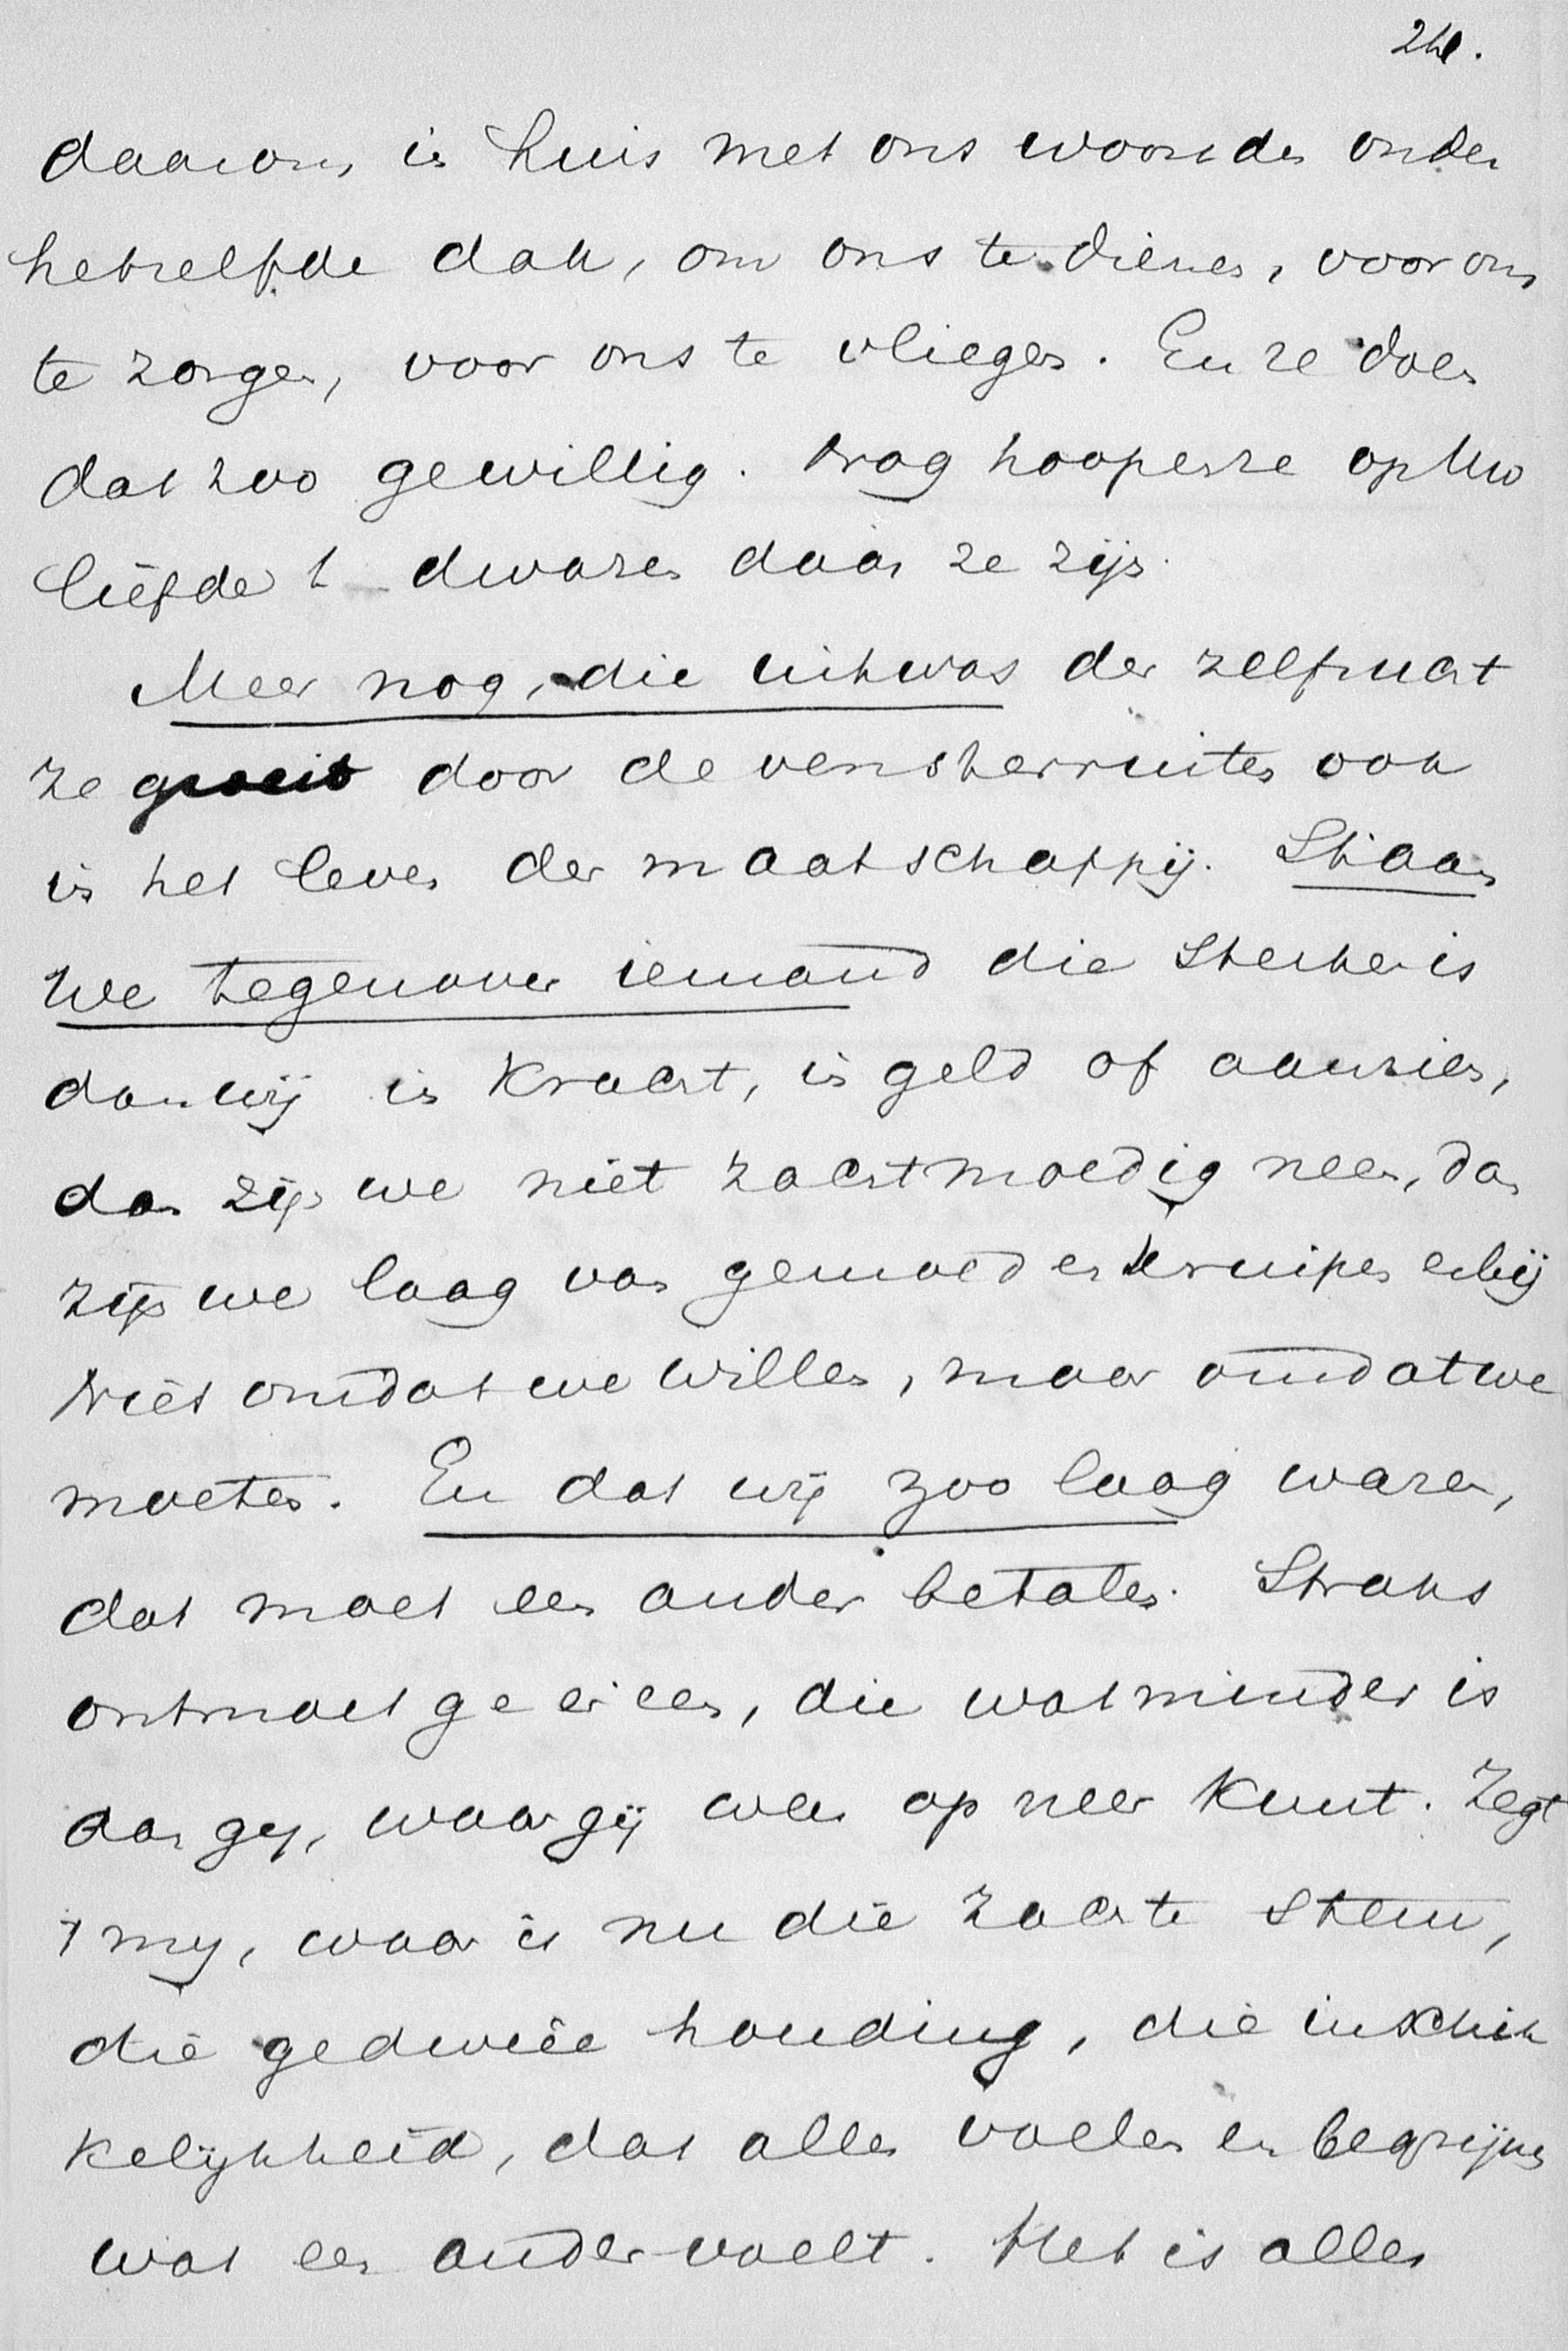 daarom, in huis met ons woonden onder
hetzelfde dak, om ons te dienen, voor ons
te zorgen, voor ons te vliegen. En ze doen
dat zoo gewillig. Nog hoopen ze op Uw
liefde! dwazen daar ze zijn.
Meer nog, die uitwas der zelfzucht
ze groeit door de vensterruiten ook
in het leven der maatschappij. Staan
we tegenover iemand die sterker is
dan wij in kracht, in geld of aanzien,
dan zijn we niet zachtmoedig neen, dan
zijn we laag van gemoed en kruipen erbij
Niet omdat we willen, maar omdat we
moeten. En dat wij zoo laag waren,
dat moet een ander betalen. Straks
ontmoet ge er een, die wat minder is
dan gij, waar gij wel op neer kunt. Zegt
't mij, waar is nu die zachte stem,
die gedweeë houding, die inschik
kelijkheid, dat alles voelen en begrijpen
wat een ander voelt. Het is alles